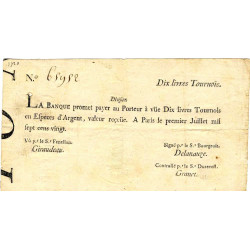 N.º 65952 Dix livres Tournois.
Division
LA BANQUE promet payer au Porteur à vûe Dix livres Tournois
en Especes d'Argent, valeur reçeüe. A Paris le premier Juillet mil
sept cens vingt.
Vû p.r le S.r Fenellon. Signé p.r le S.r Bourgeois.
Giraudeau. Delanauze.
Controllé p.r le S.r Durevest.
Granet.